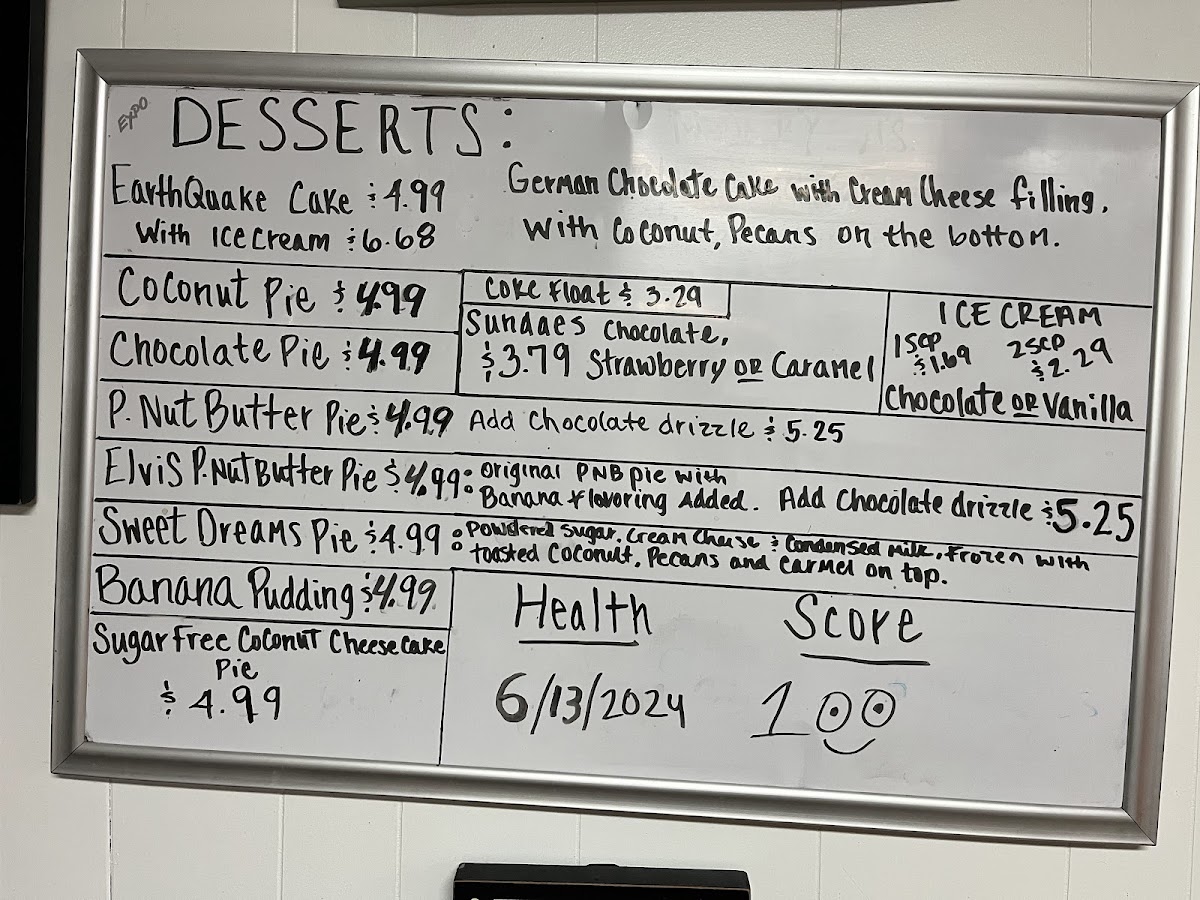 EXPO
DESSERTS:
EarthQuake Cake $4.99
With Ice Cream $6.68
German Chocolate Cake with Cream Cheese filling.
With Coconut, Pecans on the bottom.
Coconut Pie $4.99
Chocolate Pie $4.99
Coke Float $3.29
Sundaes Chocolate,
$3.79 Strawberry OR Caramel
ICE CREAM
1 SCP 2 SCP
$1.69 $2.29
Chocolate OR Vanilla
P. Nut Butter Pie $4.99 Add Chocolate drizzle $5.25
Elvis P. Nut Butter Pie $4.99: Original PNB pie with
Banana flavoring Added. Add Chocolate drizzle $5.25
Sweet Dreams Pie $4.99: Powdered Sugar, Cream Cheese & Condensed Milk, Frozen with
toasted Coconut, Pecans and Carmel on top.
Banana Pudding $4.99
Sugar Free Coconut Cheesecake
Pie
$4.99
Health Score
6/13/2024 100